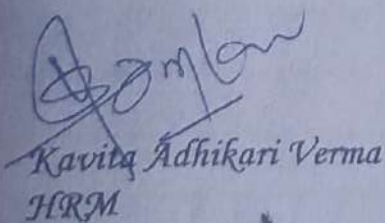 Kavita Adhikari Verma
HRM